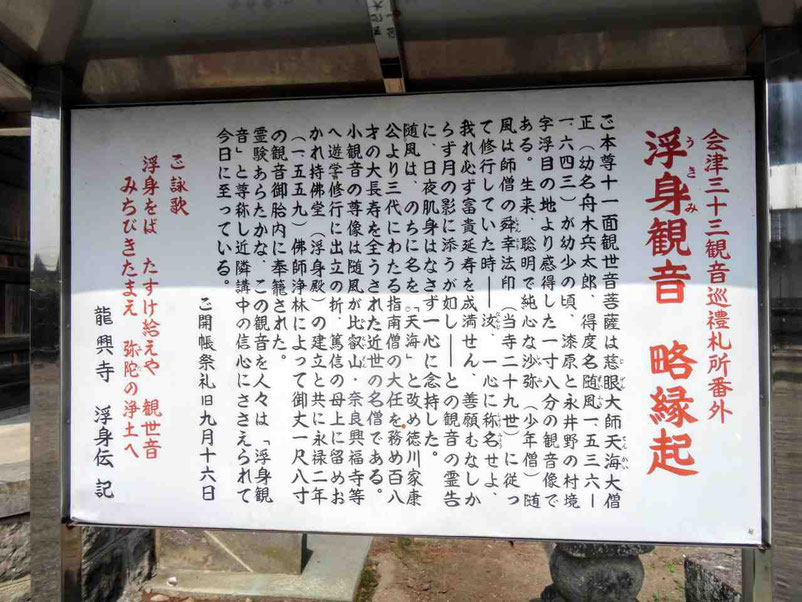 会津三十三観音巡禮札所番外
浮身観音　略縁起
うきみ
ご本尊十一面観世音菩薩は慈眼大師天海大僧
じげん
てんかい
正（幼名舟木兵太郎、得度名随風一五三六―
一六四三）が幼少の頃、漆原と永井野の村境
字浮目の地より感得した一寸八分の観音像で
ある。生来、聡明で純心な沙弥（少年僧）随
風は師僧の舜幸法印（当寺二十九世）に従っ
て修行していた時――汝、一心に称名せよ、
我れ必ず富貴延寿を成満せん、善願むなしか
らず月の影に添うが如し――との観音の霊告
に、日夜肌身はなさず一心に念持した。
随風は、のちに名を「天海」と改め徳川家康
公より三代にわたる指南僧の大任を務め百八
才の大長寿を全うされた近世の名僧である。
小観音の尊像は随風が比叡山・奈良興福寺等
へ遊学修行に出立の折、篤信の母上に留めお
かれ持佛堂（浮身殿）の建立と共に永禄二年
（一五五九）佛師浄林によって御丈一尺八寸
の観音御胎内に奉籠された。
霊験あらたかな、この観音を人々は「浮身観
音」と尊称し近隣講中の信心にささえられて
今日に至っている。
ご開帳祭礼旧九月十六日
ご詠歌
浮身をば　たすけ給えや　観世音
みちびきたまえ　弥陀の浄土へ
龍興寺　浮身伝記